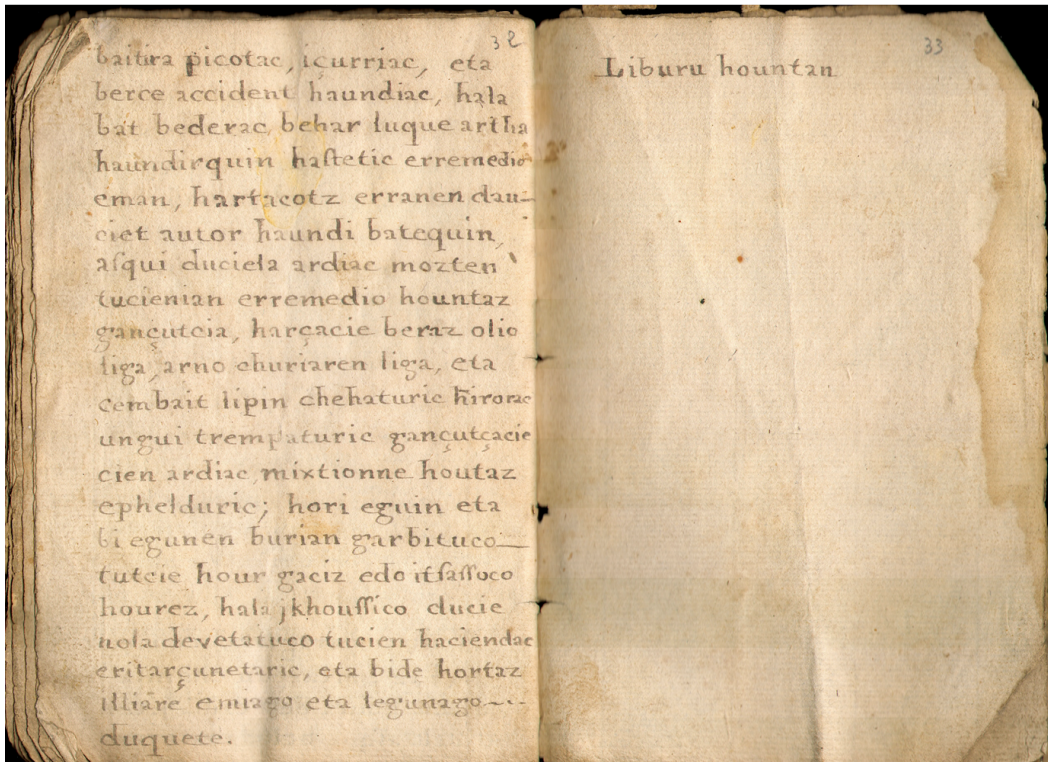 32
baitira picotac, içurriac, eta
berce accident haundiac, hala
bat bederac behar luque artha
haundirquin haſtetic erremedio
eman, hartacotz erranen dau-
ciet autor haundi batequin,
aſqui duciela ardiac mozten
tucienian erremedio hountaz
gançutcia, harçacie beraz olio
liga, arno churiaren liga, eta
cembait lipin chehaturic hirorac
ungui trempaturic gançutçacie
cien ardiac mixtionne houtaz
epheldturic; hori eguin eta
bi egunen burian garbituco
tutcie hour gaciz edo itſaſſoco
hourez, hala jkhouſſico ducie
nola devetatuco tucien haciendac
eritarçunetaric, eta bide hortaz
illiare emiago eta legunago
duquete.
33
Liburu hountan